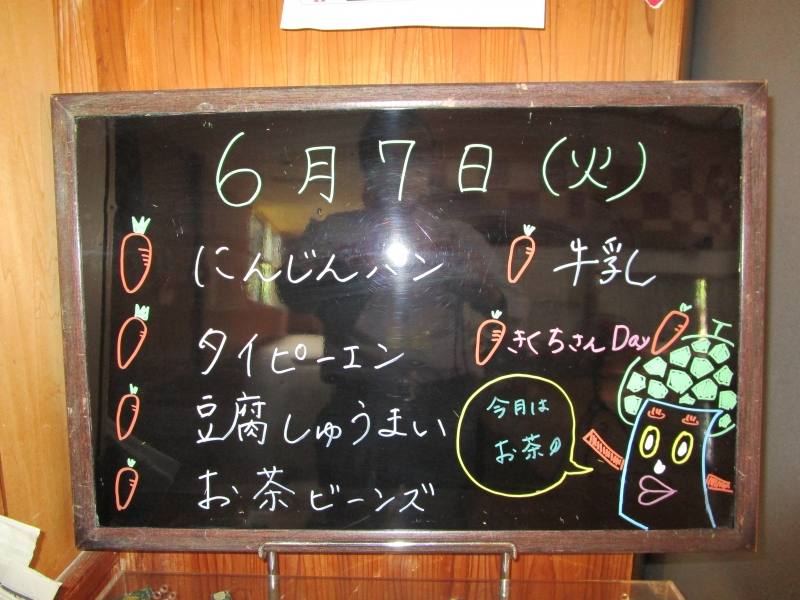 6月7日(火)
にんじんパン
牛乳
タイピーエン
きくちさんDay
豆腐しゅうまい
お茶ビーンズ
今月は
お茶